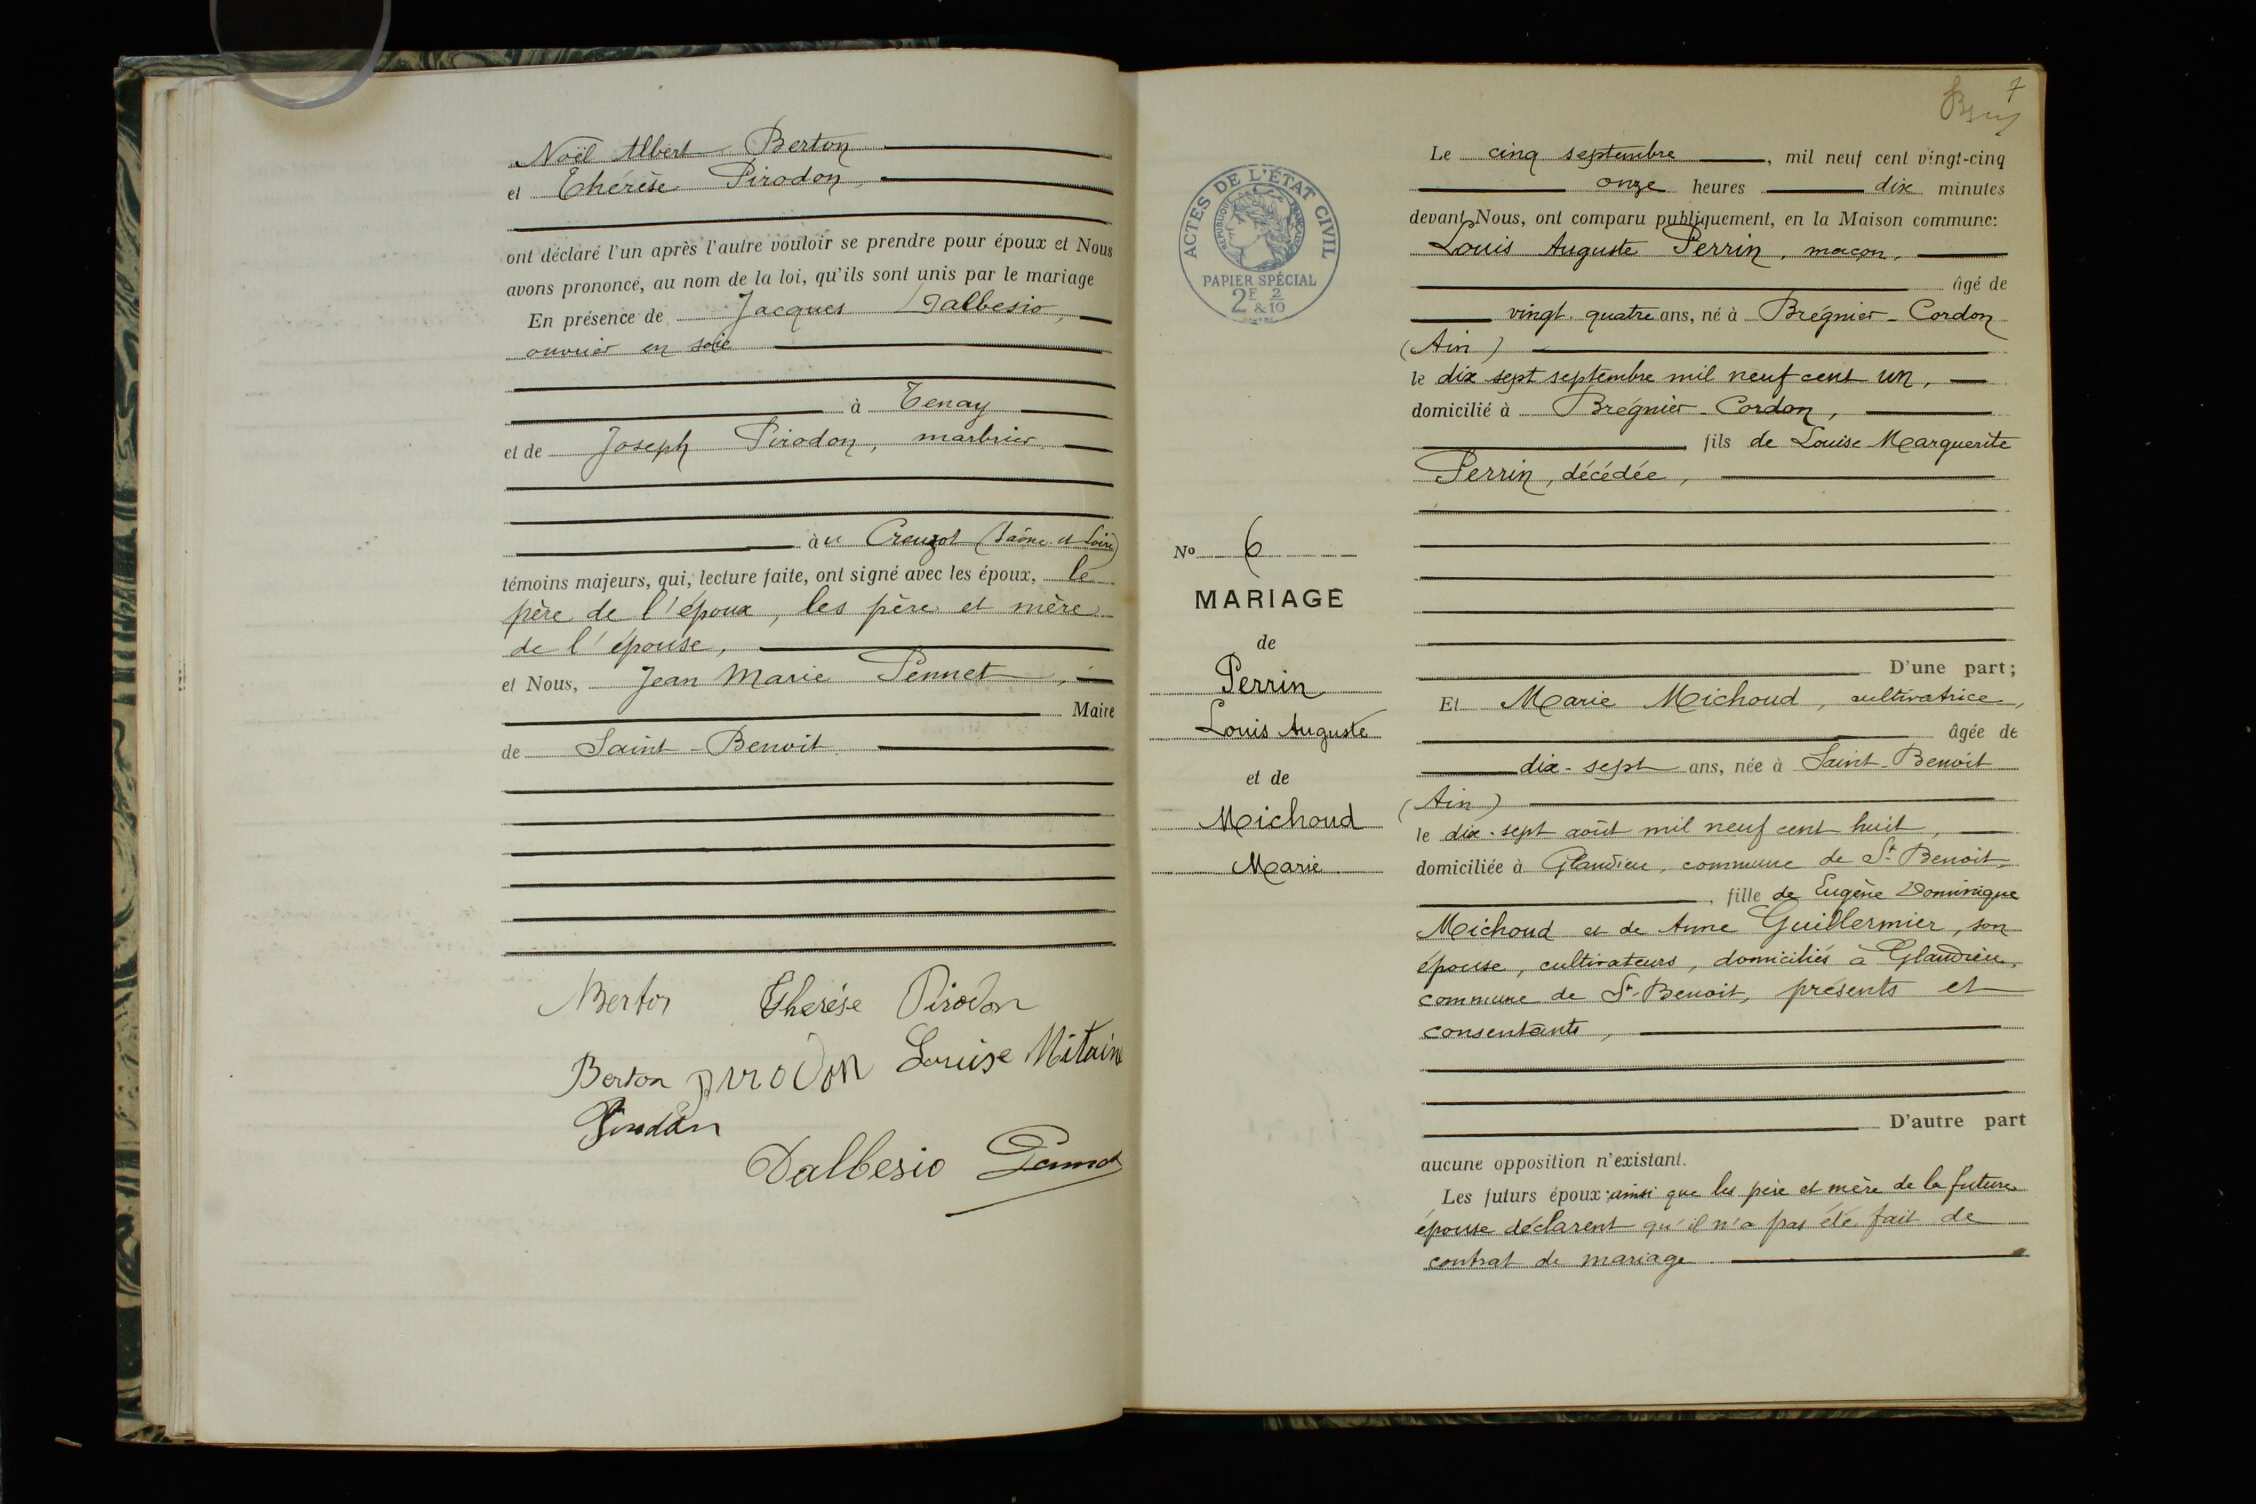 Noël Albert Berton
et Thérèse Pirodon,
ont déclaré l'un après l'autre vouloir se prendre pour époux et Nous
avons prononcé, au nom de la loi, qu'ils sont unis par le mariage
En présence de Jacques Dalbesio,
ouvrier en soie
à Tenay
et de Joseph Pirodon, marbrier
au Creuzot (Saône et Loire)
témoins majeurs, qui, lecture faite, ont signé avec les époux, le
père de l'époux, les père et mère
de l'épouse,
et Nous, Jean Marie Pennet,
Maire
de Saint-Benoit
Berton Thérèse Pirodon
Berton pirodon Louise Mitaine
Pirodon
Dalbesio Pennet
7
ACTES DE L'ÉTAT CIVIL
RÉPUBLIQUE FRANÇAISE
PAPIER SPÉCIAL
2F & 2/10
No 6
MARIAGE
de
Perrin
Louis Auguste
et de
Michoud
Marie
Le cinq septembre, mil neuf cent vingt-cinq
onze heures dix minutes
devant Nous, ont comparu publiquement, en la Maison commune:
Louis Auguste Perrin, maçon,
âgé de
vingt-quatre ans, né à Brégnier-Cordon
(Ain)
le dix sept septembre mil neuf cent un,
domicilié à Brégnier-Cordon,
fils de Louise Marguerite
Perrin, décédée,
D'une part;
Et Marie Michoud, cultivatrice,
âgée de
dix-sept ans, née à Saint-Benoit
(Ain)
le dix-sept août mil neuf cent huit,
domiciliée à Glandieu, commune de St Benoit,
, fille de Eugène Dominique
Michoud et de Anne Guillermier, son
épouse, cultivateurs, domiciliés à Glandieu,
commune de St-Benoit, présents et
consentants,
D'autre part
aucune opposition n'existant.
Les futurs époux ainsi que les père et mère de la future
épouse déclarent qu'il n'a pas été fait de
contrat de mariage